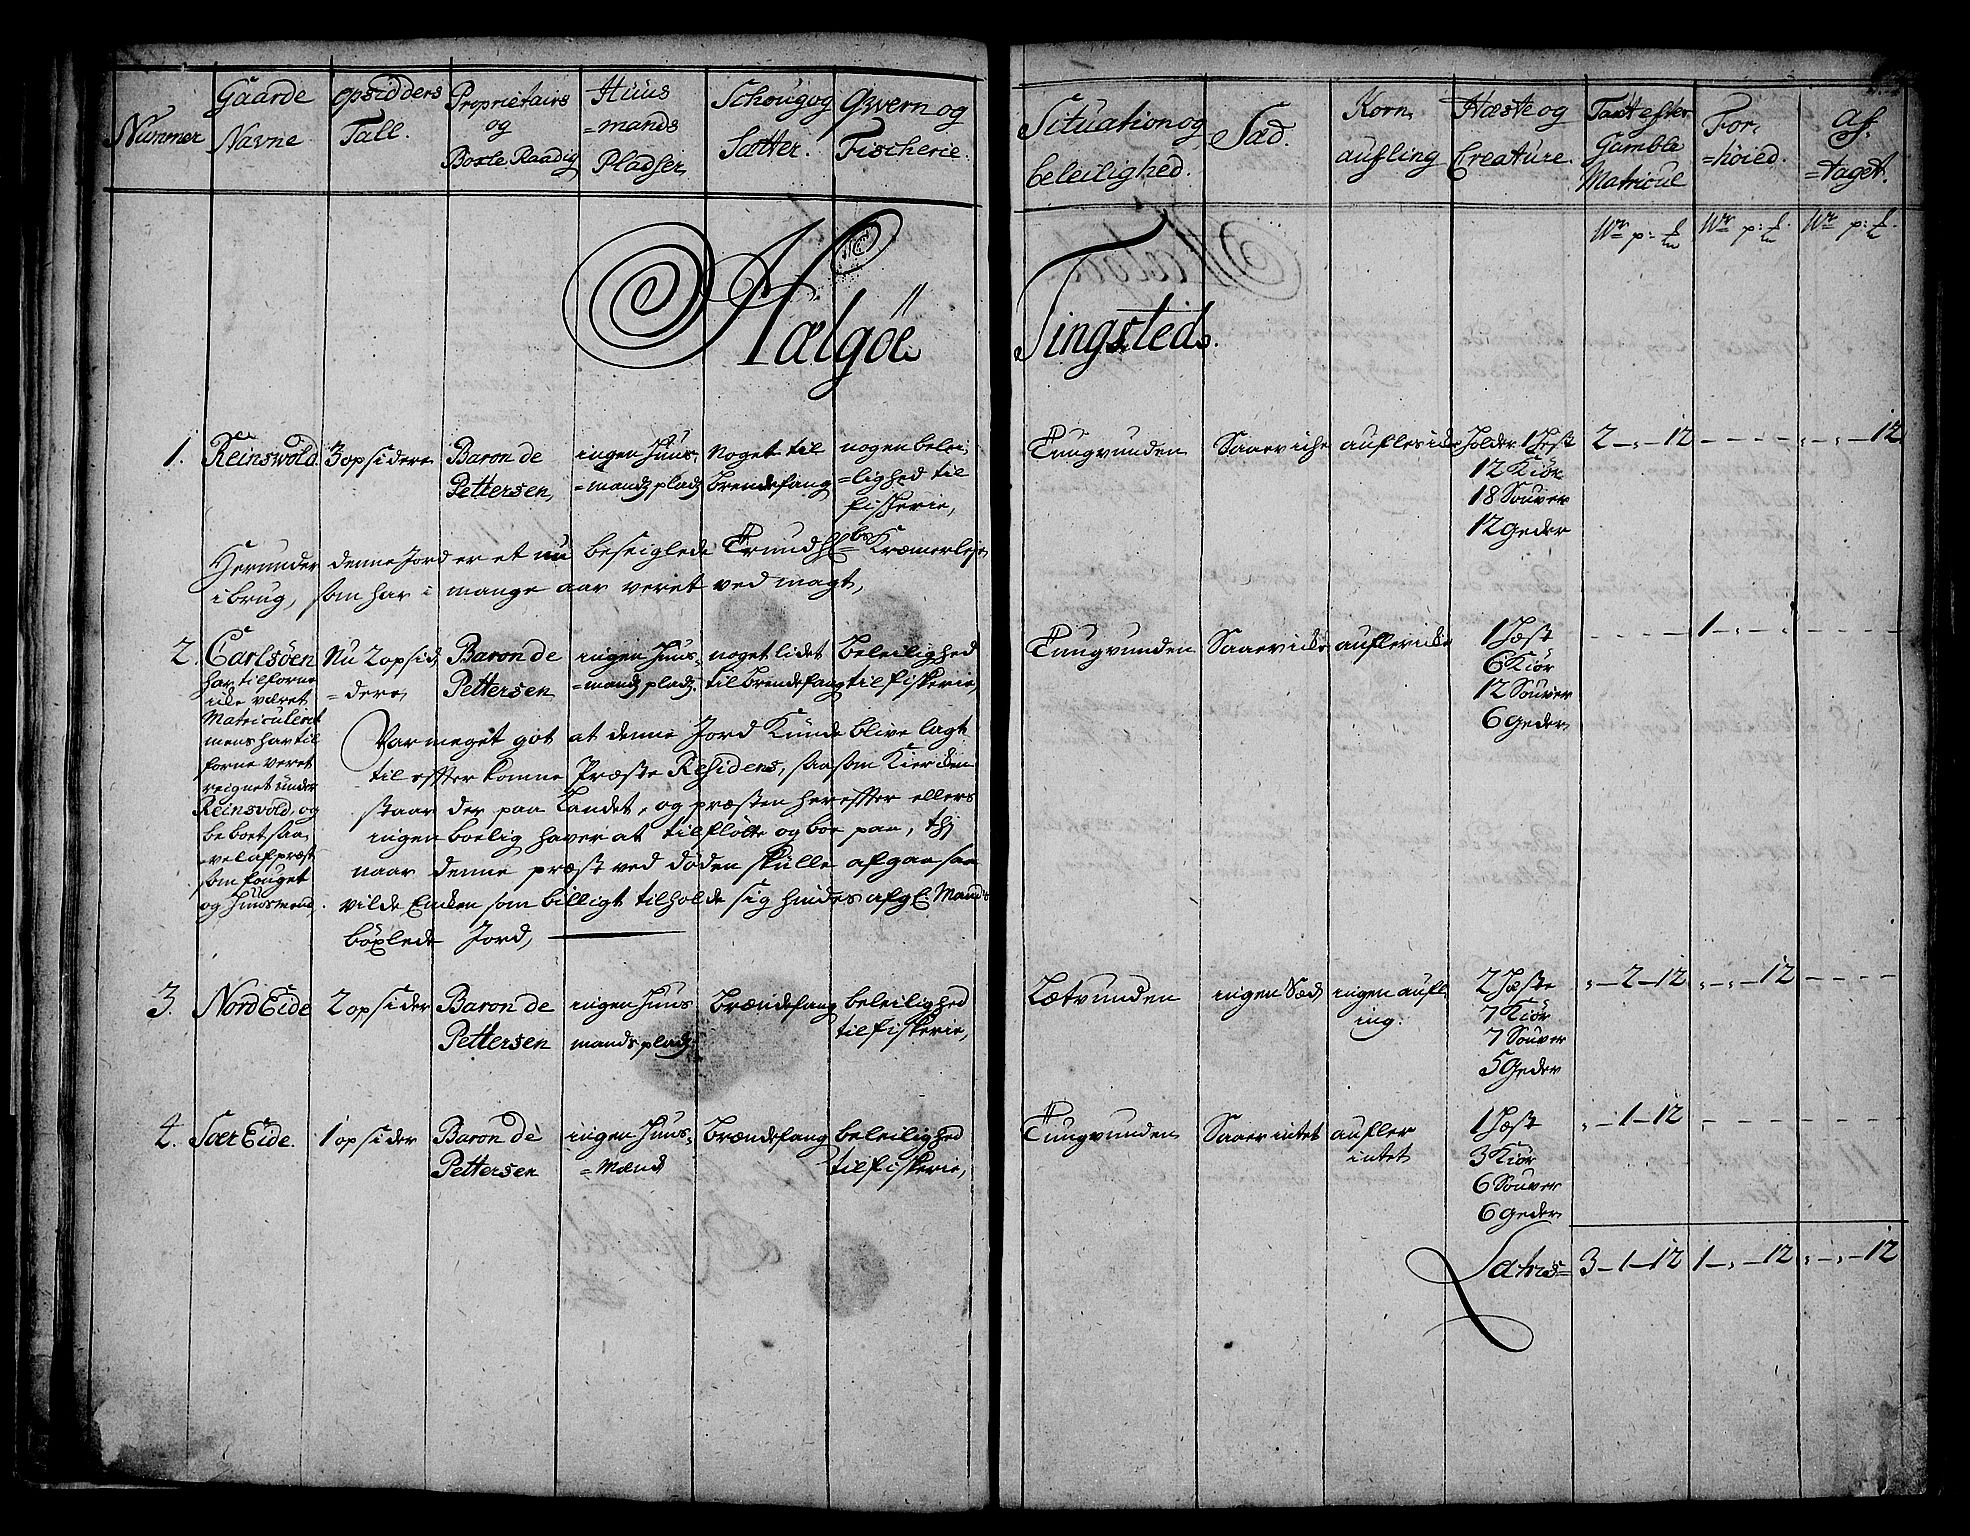 Nummer
Gaarde
Navne
opsidders
Tall.
Proprietairs
og
Boxle Raadig
Huus
=mands
Pladser
Schoug og
Sætter.
Qvern og
Fischerie.
Situation og
beleilighed.
Sæd.
Korn
aufling
Hæste og
Creature.
Taxt efter
Gamble
Matricul
For,
=höied.
Af
=taget.
Wr p: Ł
Wr p: Ł
Wr p: Ł
Hælgöe Tingsteds.
1. Reinswold 3 opsidere Baron de Pettersen,
ingen Huus,
=mands plads
Noget til
brendefang
nogen belei,
=lighed til
fisherie,
Tungvunden
Saaer iche
aufler icke
Holder 1 Hest
12 Kiör
18 Souver
12 Geder
2 – „ – 12
„ – „ – 12
Herunder denne Jord er et nu beseiglede Trundh: bs Kræmerleje
i brug, som har i mange aar veret ved magt,
2. Carlsöen
har tilforne
icke været
Matriculerit
mens har til
forne veret
reignet under
Reinsvold, og
beboet saa,
=vel af præst
som fouget
og Huusmend.
Nu 2 opsid
=dere
Baron de
Pettersen
ingen Huus,
=mands plads.
noget lidet
til brendefang
beleilighed
til fiskerie,
Tungvunden
Saaer icke
aufler icke
1 Hæst
6 Kiör
12 Souver
6 Geder
1 – „ –
Var meget got at denne Jord Kunde blive lagt
til effter komne Præste Residens, saasom Kiercken
staar der paa Landet, og præsten hereffter ellers
ingen boelig haver at tilflötte og boe paa, thj
naar denne præst ved döden skulle afgaa saa
vilde Encken som billigt tilholde sig hindes afgl: Mands
böxlede Jord,
3. Nord Eide
2 opsider
Baron de
Pettersen
ingen Huus
mands plads
Brændefang
beleilighed
til fiskerie,
Lætvunden
ingen Sæd
ingen aufl,
ing.
2 Hæste
7 Kiör
7 Souver
5 Geder
„ – 2 – 12
„ – „ – 12
4. Sær Eide.
1 opsider
Baron de
Pettersen
ingen Huus,
=mænd
Brændefang
beleilighed
til fiskerie,
Tungvunden
Saaer intet
aufler
intet
1 Hæst
3 Kiör
6 Souver
6 Geder
„ – 1 – 12
Latus = 3 – 1 – 12 1 – „ – 12 „ – „ – 12